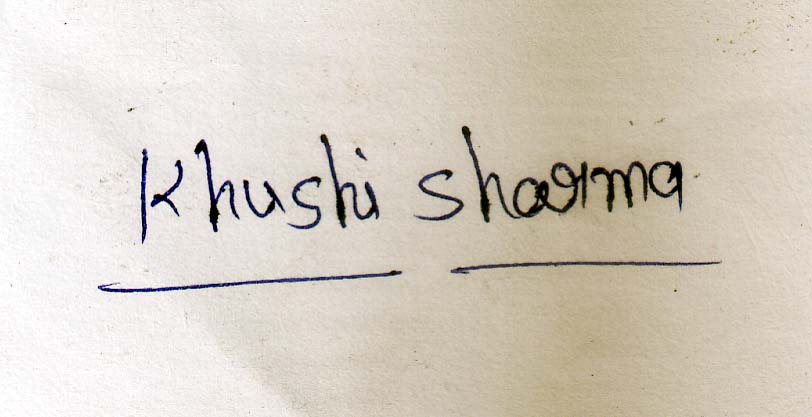 Khushi sharma